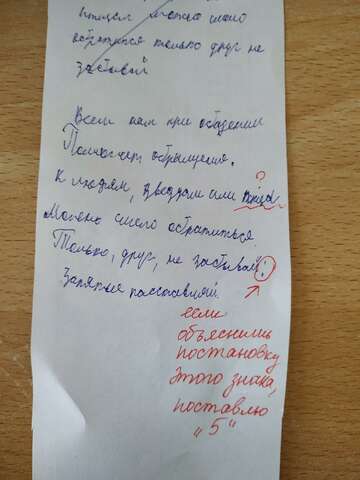 птицам можно смело
обратиться только друг не
забывай
Всем нам при общении
Помогает обращение.
?
К людям, звездам или птицам
Можно смело обратиться.
Только, друг, не забывай:
Запятые расставляй.
если
объяснишь
постановку
этого знака,
поставлю
"5"